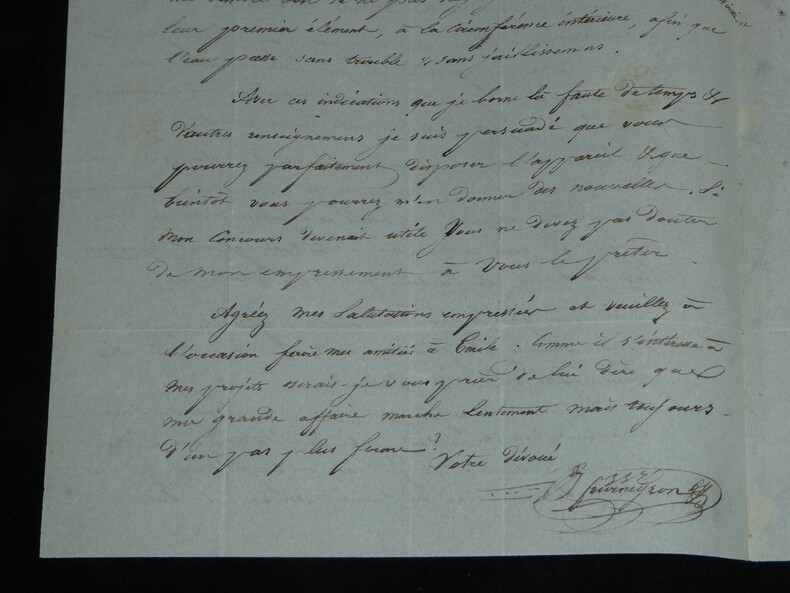 leur premier élément, à la circonférence intérieure, afin que
l'eau passe sans trouble & sans jaillissemens.
Avec ces indications que je borne là faute de temps &
d'autres renseignemens je suis persuadé que vous
pourrez parfaitement disposer l'appareil & que
bientôt vous pourrez m'en donner des nouvelles. Si
mon concours devenait utile Vous ne devez pas douter
de mon empressement à Vous le prêter.
Agréez mes Salutations empressées et veuillez à
l'occasion faire mes amitiés à Emile. Comme il s'intéresse à
mes projets oserais-je vous prier de lui dire que
ma grande affaire marche lentement mais toujours
d'un pas plus ferme?
Votre dévoué
fourneyron